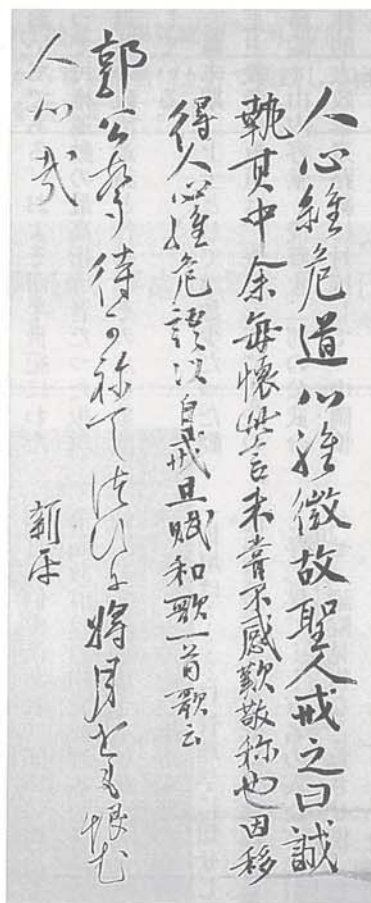 人心維危道心維微故聖人戒之曰誠
執其中余毎懐此言未嘗不感歎敬称也因移
得人心維危語以自戒且賦和歌一首歌云
郭公聲待可祢てつひに将月をも恨む
人心哉
新平